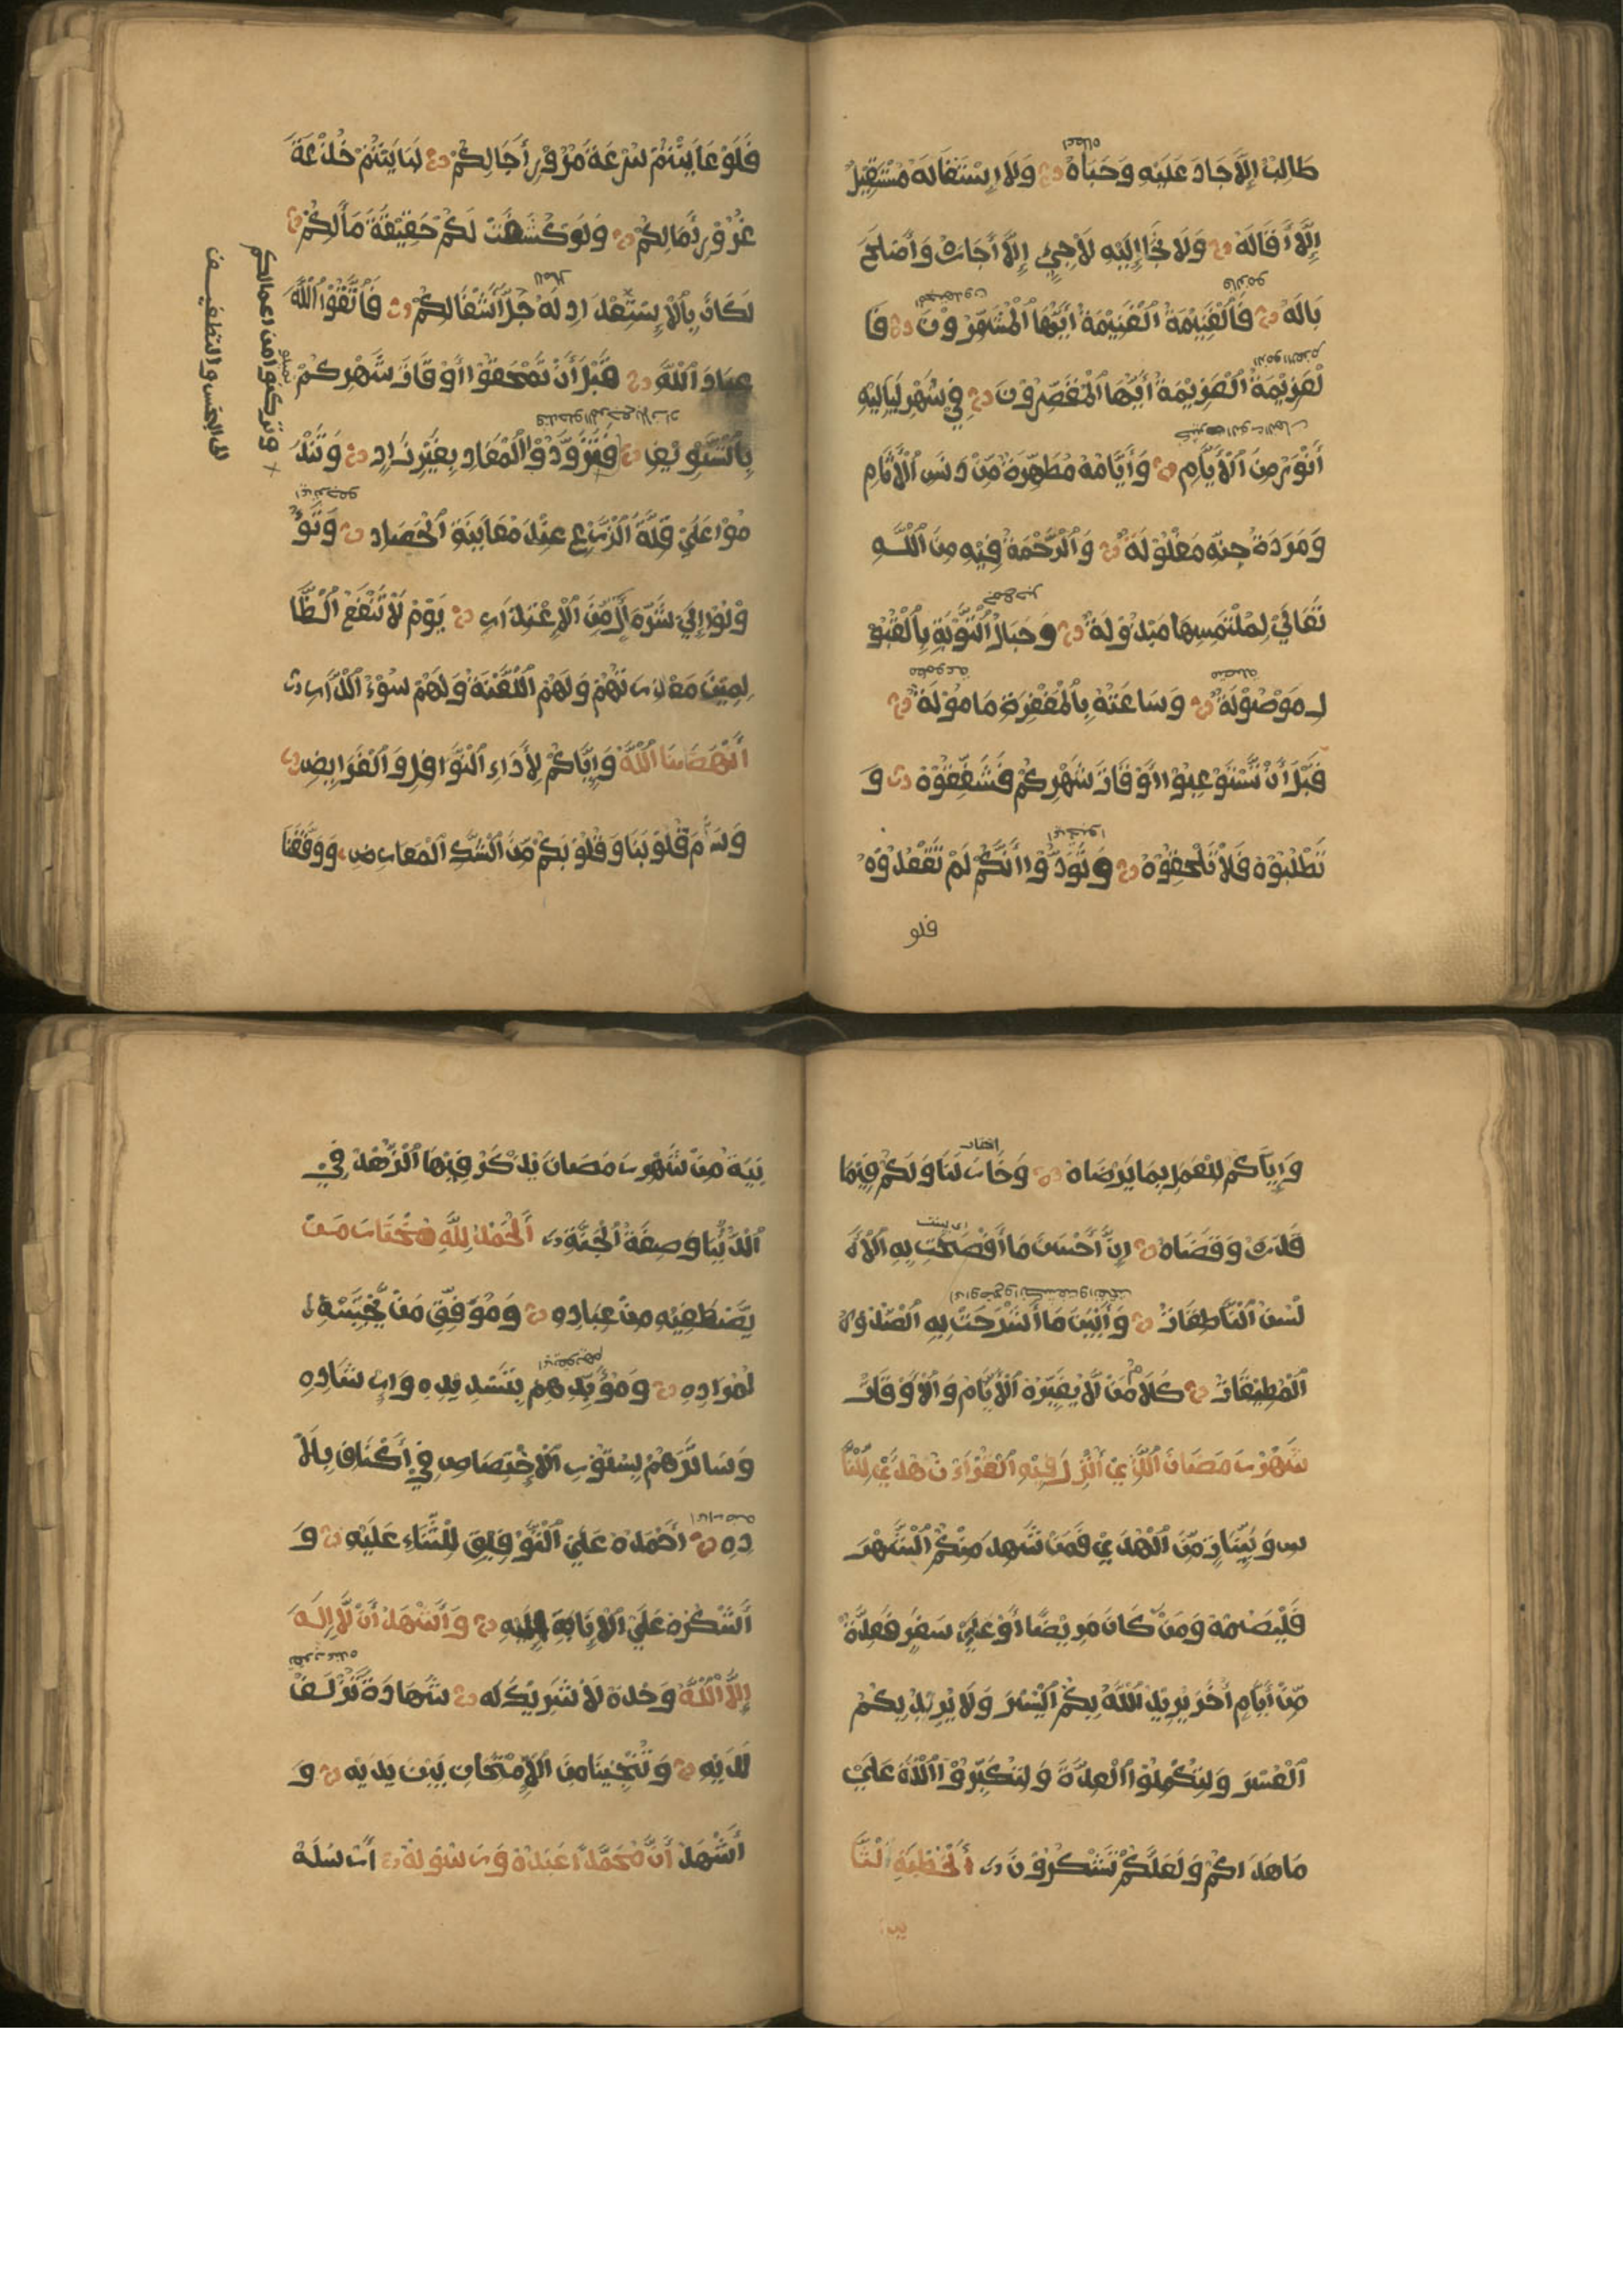 طَالِبٌ إِلَّا جَادَ عَلَيْهِ وَحَبَاهُ وَلَا اِسْتَقَالَهُ مُسْتَقِيلٌ
إِلَّا أَقَالَهُ وَلَا لَجَا إِلَيْهِ لَاجِئٌ إِلَّا أَجَابَ وَأَصْلَحَ
بَالَهُ فَالْغَنِيمَةُ الْغَنِيمَةُ أَيُّهَا الْمُشَمِّرُونَ فَا
لْعَزِيمَةُ الْعَزِيمَةُ أَيُّهَا الْمُقَصِّرُونَ فِي شَهْرٍ لَيَالِيهِ
أَنْوَرُ مِنَ الْأَيَّامِ وَأَيَّامُهُ مُطَهِّرَةٌ مِنْ دَنَسِ الْأَثَامِ
وَمَرَدَةُ جِنِّهِ مَغْلُولَةٌ وَالرَّحْمَةُ فِيهِ مِنَ اللَّهِ
تَعَالَى لِمُلْتَمِسِهَا مَبْذُولَةٌ وَحِبَالُ التَّوْبَةِ بِالْقَبُو
لِ مَوْصُولَةٌ وَسَاعَتُهُ بِالْمَغْفِرَةِ مَامُولَةٌ
قَبْلَ أَنْ تَسْتَوْعِبُوا أَوْقَاتَ شَهْرِكُمْ فَشَفِّعُوهُ وَ
تَطْلُبُوهُ فَلَا تَلْحَقُوهُ وَتَوَدُّوا أَنَّكُمْ لَمْ تَفْقِدُوهُ
فلو
فَلَوْ عَايَنْتُمْ سُرْعَةَ مُرُورِ أَجَالِكُمْ لَبَايَنْتُمْ خُدْعَةَ
غُرُورِ أَمَالِكُمْ وَلَوْ كُشِفَتْ لَكُمْ حَقِيقَةُ مَالِكُمْ
لَكَانَ بِالْاِسْتِعْدَادِ لَهُ جُلُّ أَشْغَالِكُمْ فَاتَّقُوا اللَّهَ
عِبَادَ اللَّهِ قَبْلَ أَنْ تَمْحَقُوا أَوْقَاتَ شَهْرِكُمْ
بِالتَّسْوِيفِ فَتَزَوَّدُوا لِلْمَعَادِ بِغَيْرِ زَادٍ وَتَنْدَ
مُوا عَلَى قِلَّةِ الزَّرْعِ عِنْدَ مُعَايَنَةِ الْحَصَادِ وَتَؤُ
وْبُوا إِلَى شَرِّ مَالٍ مِنَ الْاِعْتِذَارِ يَوْمَ لَا تَنْفَعُ الظَّا
لِمِينَ مَعْذِرَتُهُمْ وَلَهُمُ اللَّعْنَةُ وَلَهُمْ سُوءُ الدَّارِ
أَنْهَضَنَا اللَّهُ وَإِيَّاكُمْ لِأَدَاءِ النَّوَافِلِ وَالْفَرَايِضِ
وَسَلَّمَ قُلُوبَنَا وَقُلُوبَكُمْ مِنَ الشَّكِّ الْمُعَارِضِ وَوَفَّقَنَا
وتركنوا من اعمالكم
الى البخس والتطفيـف
وَإِيَّاكُمْ لِلْعَمَلِ بِمَا يَرْضَاهُ وَخَارَ لَنَا وَلَكُمْ فِيمَا
قَدَّرَ وَقَضَاهُ إِنَّ أَحْسَنَ مَا أَفْصَحَتْ بِهِ الْأَ
لْسُنُ النَّاطِقَاتُ وَأَبْيَنَ مَا انْشَرَحَتْ بِهِ الصُّدُورُ
الْمُطِيقَاتُ كَلَامُ مَنْ لَا يُغَيِّرُهُ الْأَيَّامُ وَالْأَوْقَاتُ
شَهْرُ رَمَضَانَ الَّذِي أُنْزِلَ فِيهِ الْقُرْءَانُ هُدًى لِلنَّا
سِ وَبَيِّنَاتٍ مِنَ الْهُدَى فَمَنْ شَهِدَ مِنْكُمُ الشَّهْرَ
فَلْيَصُمْهُ وَمَنْ كَانَ مَرِيضًا أَوْ عَلَى سَفَرٍ فَعِدَّةٌ
مِنْ أَيَّامٍ أُخَرَ يُرِيدُ اللَّهُ بِكُمُ الْيُسْرَ وَلَا يُرِيدُ بِكُمُ
الْعُسْرَ وَلِتُكْمِلُوا الْعِدَّةَ وَلِتُكَبِّرُوا اللَّهَ عَلَى
مَا هَدَاكُمْ وَلَعَلَّكُمْ تَشْكُرُونَ اَلْخُطْبَةُ الثَّا
نِيَةُ مِنْ شَهْرِ رَمَضَانَ يُذْكَرُ فِيهَا الزُّهْدُ فِي
الدُّنْيَا وَصِفَةُ الْجَنَّةِ اَلْحَمْدُ لِلَّهِ مُخْتَارِ مَنْ
يَصْطَفِيهِ مِنْ عِبَادِهِ وَمُوَفِّقِ مَنْ يَجْتَبِيهِ
لِمُرَادِهِ وَمُؤَيِّدِهِمْ بِتَسْدِيدِهِ وَإِرْشَادِهِ
وَسَاتِرِهِمْ بِسُتُورِ الْاِخْتِصَاصِ فِي أَكْنَافِ بِلَا
دِهِ أَحْمَدُهُ عَلَى التَّوْفِيقِ لِلثَّنَاءِ عَلَيْهِ وَ
أَشْكُرُهُ عَلَى الْإِنَابَةِ إِلَيْهِ وَأَشْهَدُ أَنْ لَا إِلَهَ
إِلَّا اللَّهُ وَحْدَهُ لَا شَرِيكَ لَهُ شَهَادَةً تُزْلِفُ
لَدَيْهِ وَتُنْجِينَا مِنَ الْاِمْتِحَانِ بَيْنَ يَدَيْهِ وَ
أَشْهَدُ أَنَّ مُحَمَّدًا عَبْدُهُ وَرَسُولُهُ أَرْسَلَهُ